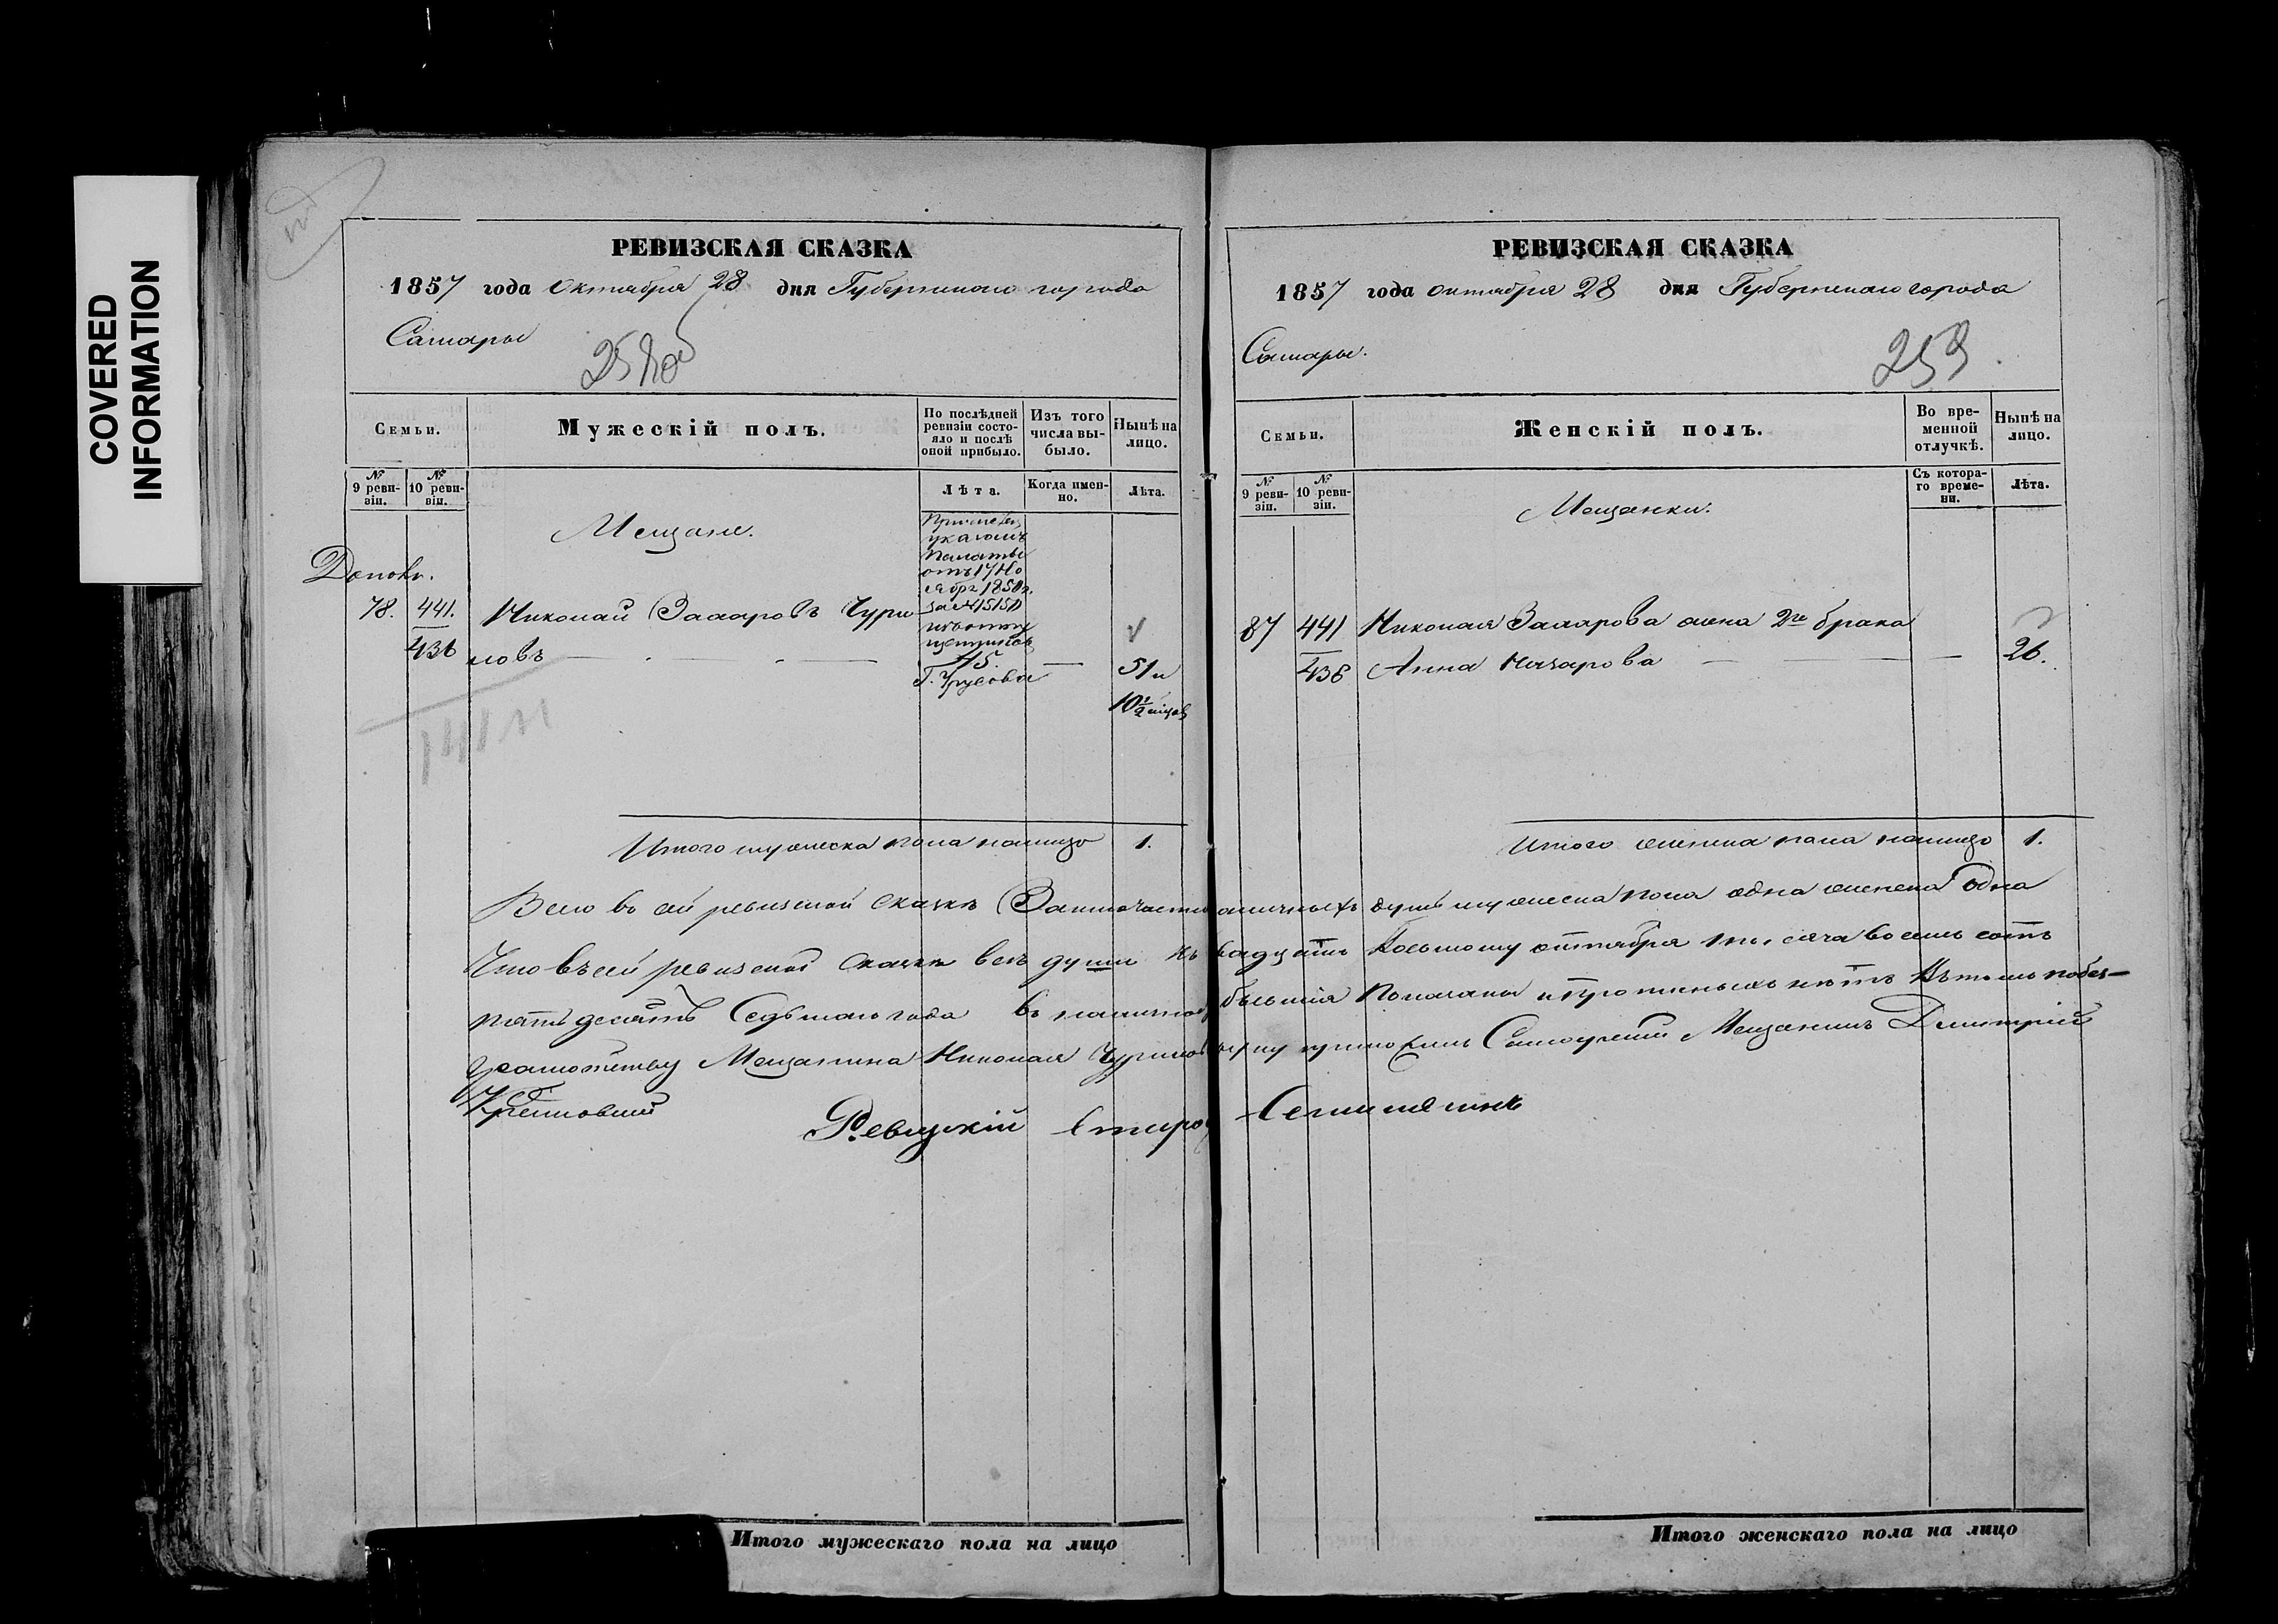 COVERED
INFORMATION
РЕВИЗСКАЯ СКАЗКА
1857 года Октября 28 дня Губернскаго города
Самары
258об
Семьи.
Мужескій полъ.
По послѣдней ревизіи состояло и послѣ оной прибыло.
Изъ того числа выбыло.
Нынѣ на лицо.
№ 9 ревизіи.
№ 10 ревизіи.
Лѣта.
Когда именно.
Лѣта.
Мещане.
Дополн.
78. 441. Николай Захаровъ Чури
436 новъ
указомъ
Палаты
отъ 17 Но
ября 1850 г.
за № 15150
45.
51 и
10½
Итого мужеска пола налицо 1.
РЕВИЗСКАЯ СКАЗКА
1857 года октября 28 дня Губернскаго города
Самары.
259
Семьи.
Женскій полъ.
Во временной отлучкѣ.
Нынѣ на лицо.
№ 9 ревизіи.
№ 10 ревизіи.
Съ котораго времени.
Лѣта.
Мещанки.
87 441 Николая Захарова жена 2го брака
436 Анна Назарова 26.
Итого женска пола налицо 1.
Всего въ сей ревизской сказкѣ Заключается наличныхъ душъ мужеска пола одна женска одна
Что въ сей ревизской сказкѣ всѣ души къ двадцать восьмому октября тысяча восемь сотъ
пятьдесятъ Седьмаго года въ наличности бывшія Показаны и пропиныхъ нѣтъ въ томъ побез-
грамотству Мещанина Николая Чуринова руку приложилъ Самарскій Мещанинъ Дмитрій
Ревизкій
Итого мужескаго пола на лицо
Итого женскаго пола на лицо